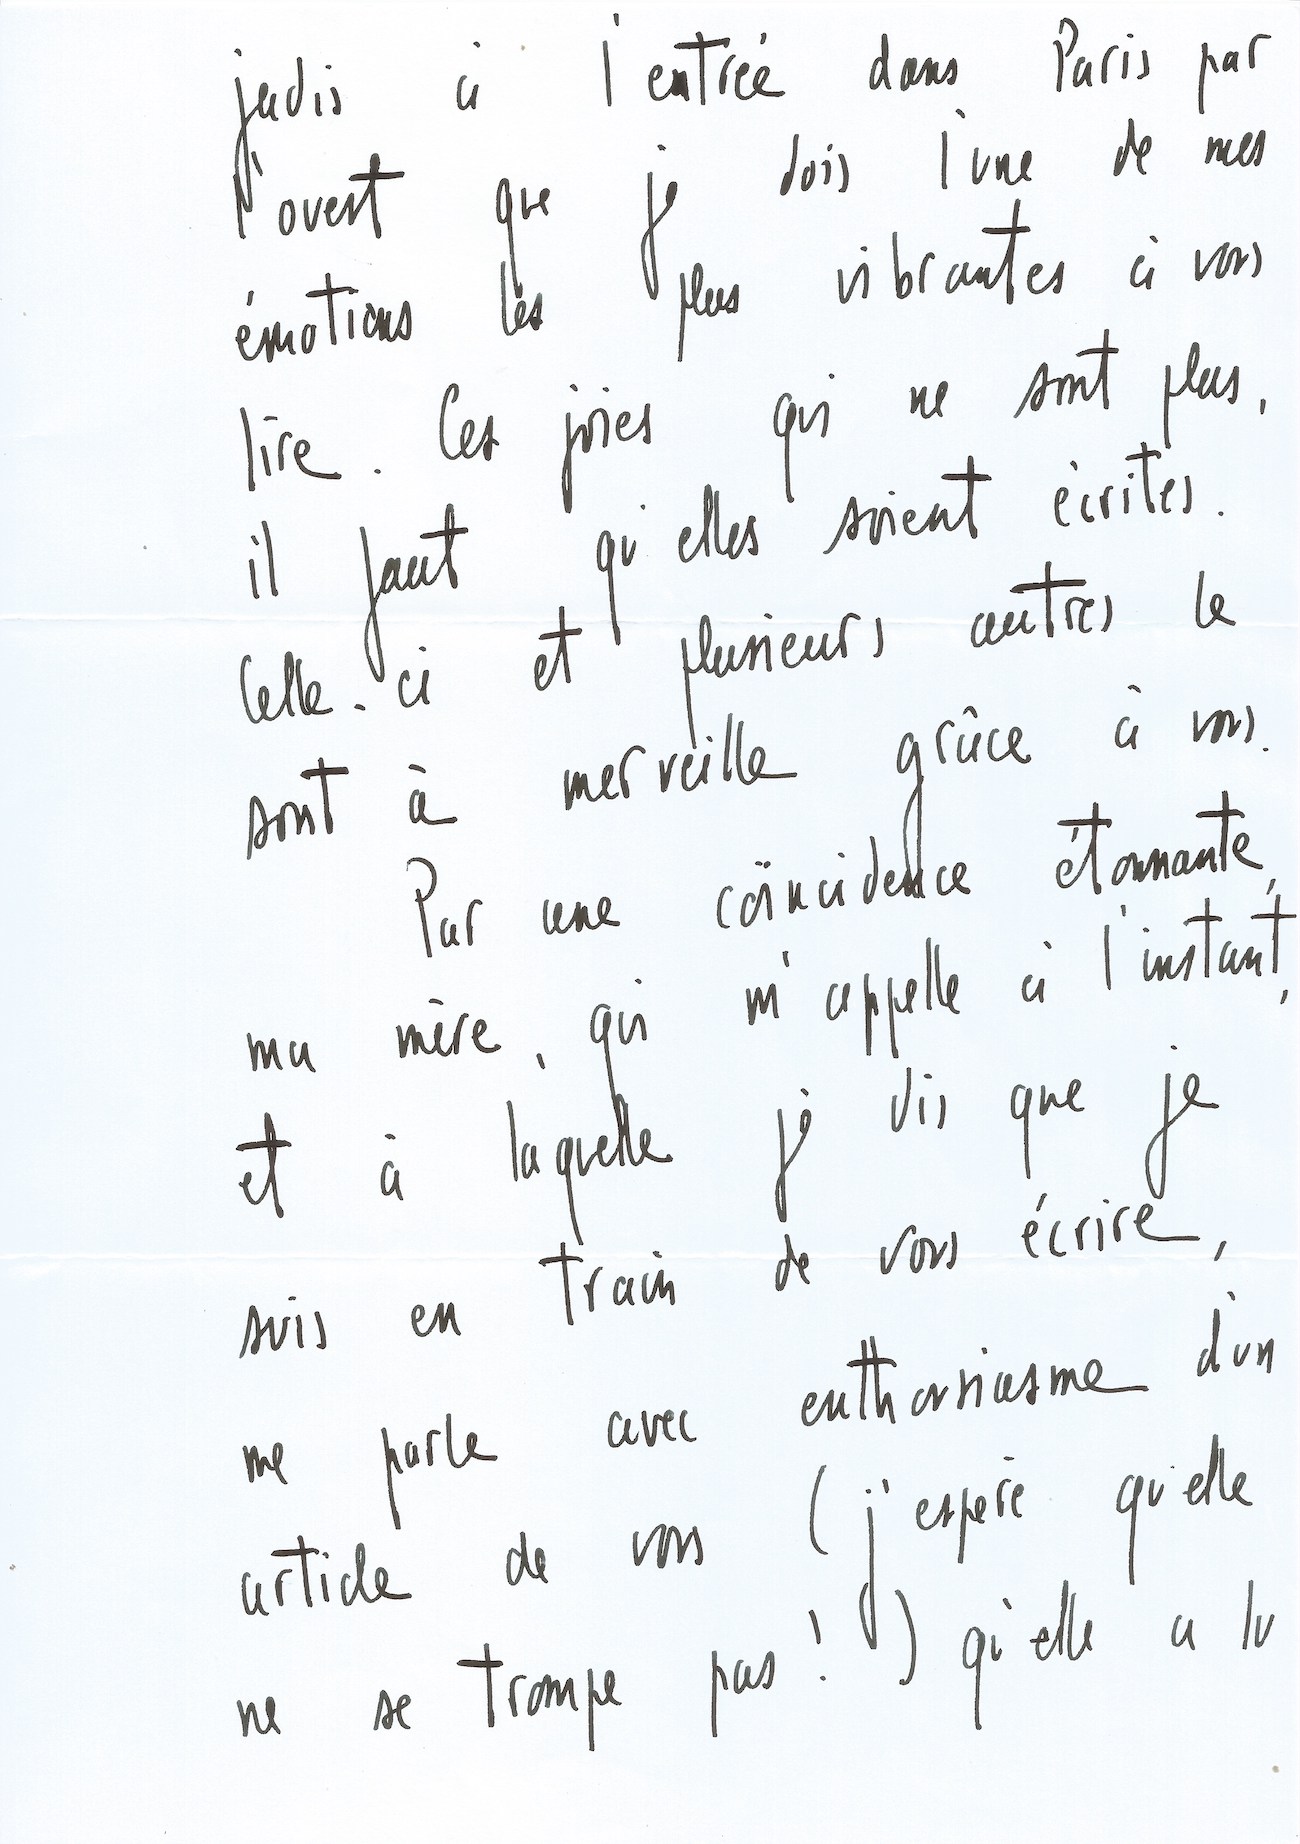 jadis à l'entrée dans Paris par
l'ouest que je dois l'une de mes
émotions les plus vibrantes à vous
lire. Ces joies qui ne sont plus,
il faut qu'elles soient écrites.
Celle-ci et plusieurs autres le
sont à merveille grâce à vous.
Par une coïncidence étonnante,
ma mère, qui m'appelle à l'instant,
et à laquelle je dis que je
suis en train de vous écrire,
me parle avec enthousiasme d'un
article de vous (j'espère qu'elle
ne se trompe pas!) qu'elle a lu